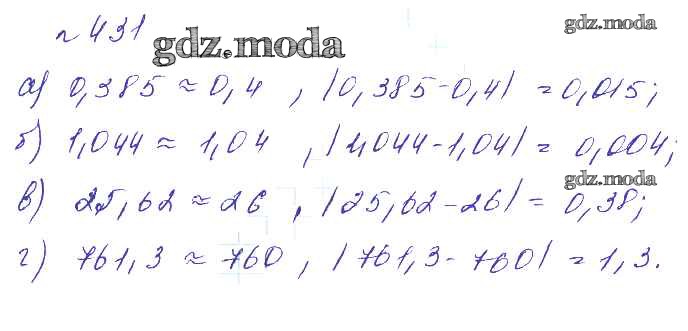 № 431
gdz.moda
gdz.moda
а) 0,385 ≈ 0,4 , |0,385-0,4| = 0,015;
б) 1,044 ≈ 1,04 , |1,044-1,04| = 0,004;
gdz.moda
в) 25,62 ≈ 26 , |25,62-26| = 0,38;
г) 761,3 ≈ 760 , |761,3-760| = 1,3.